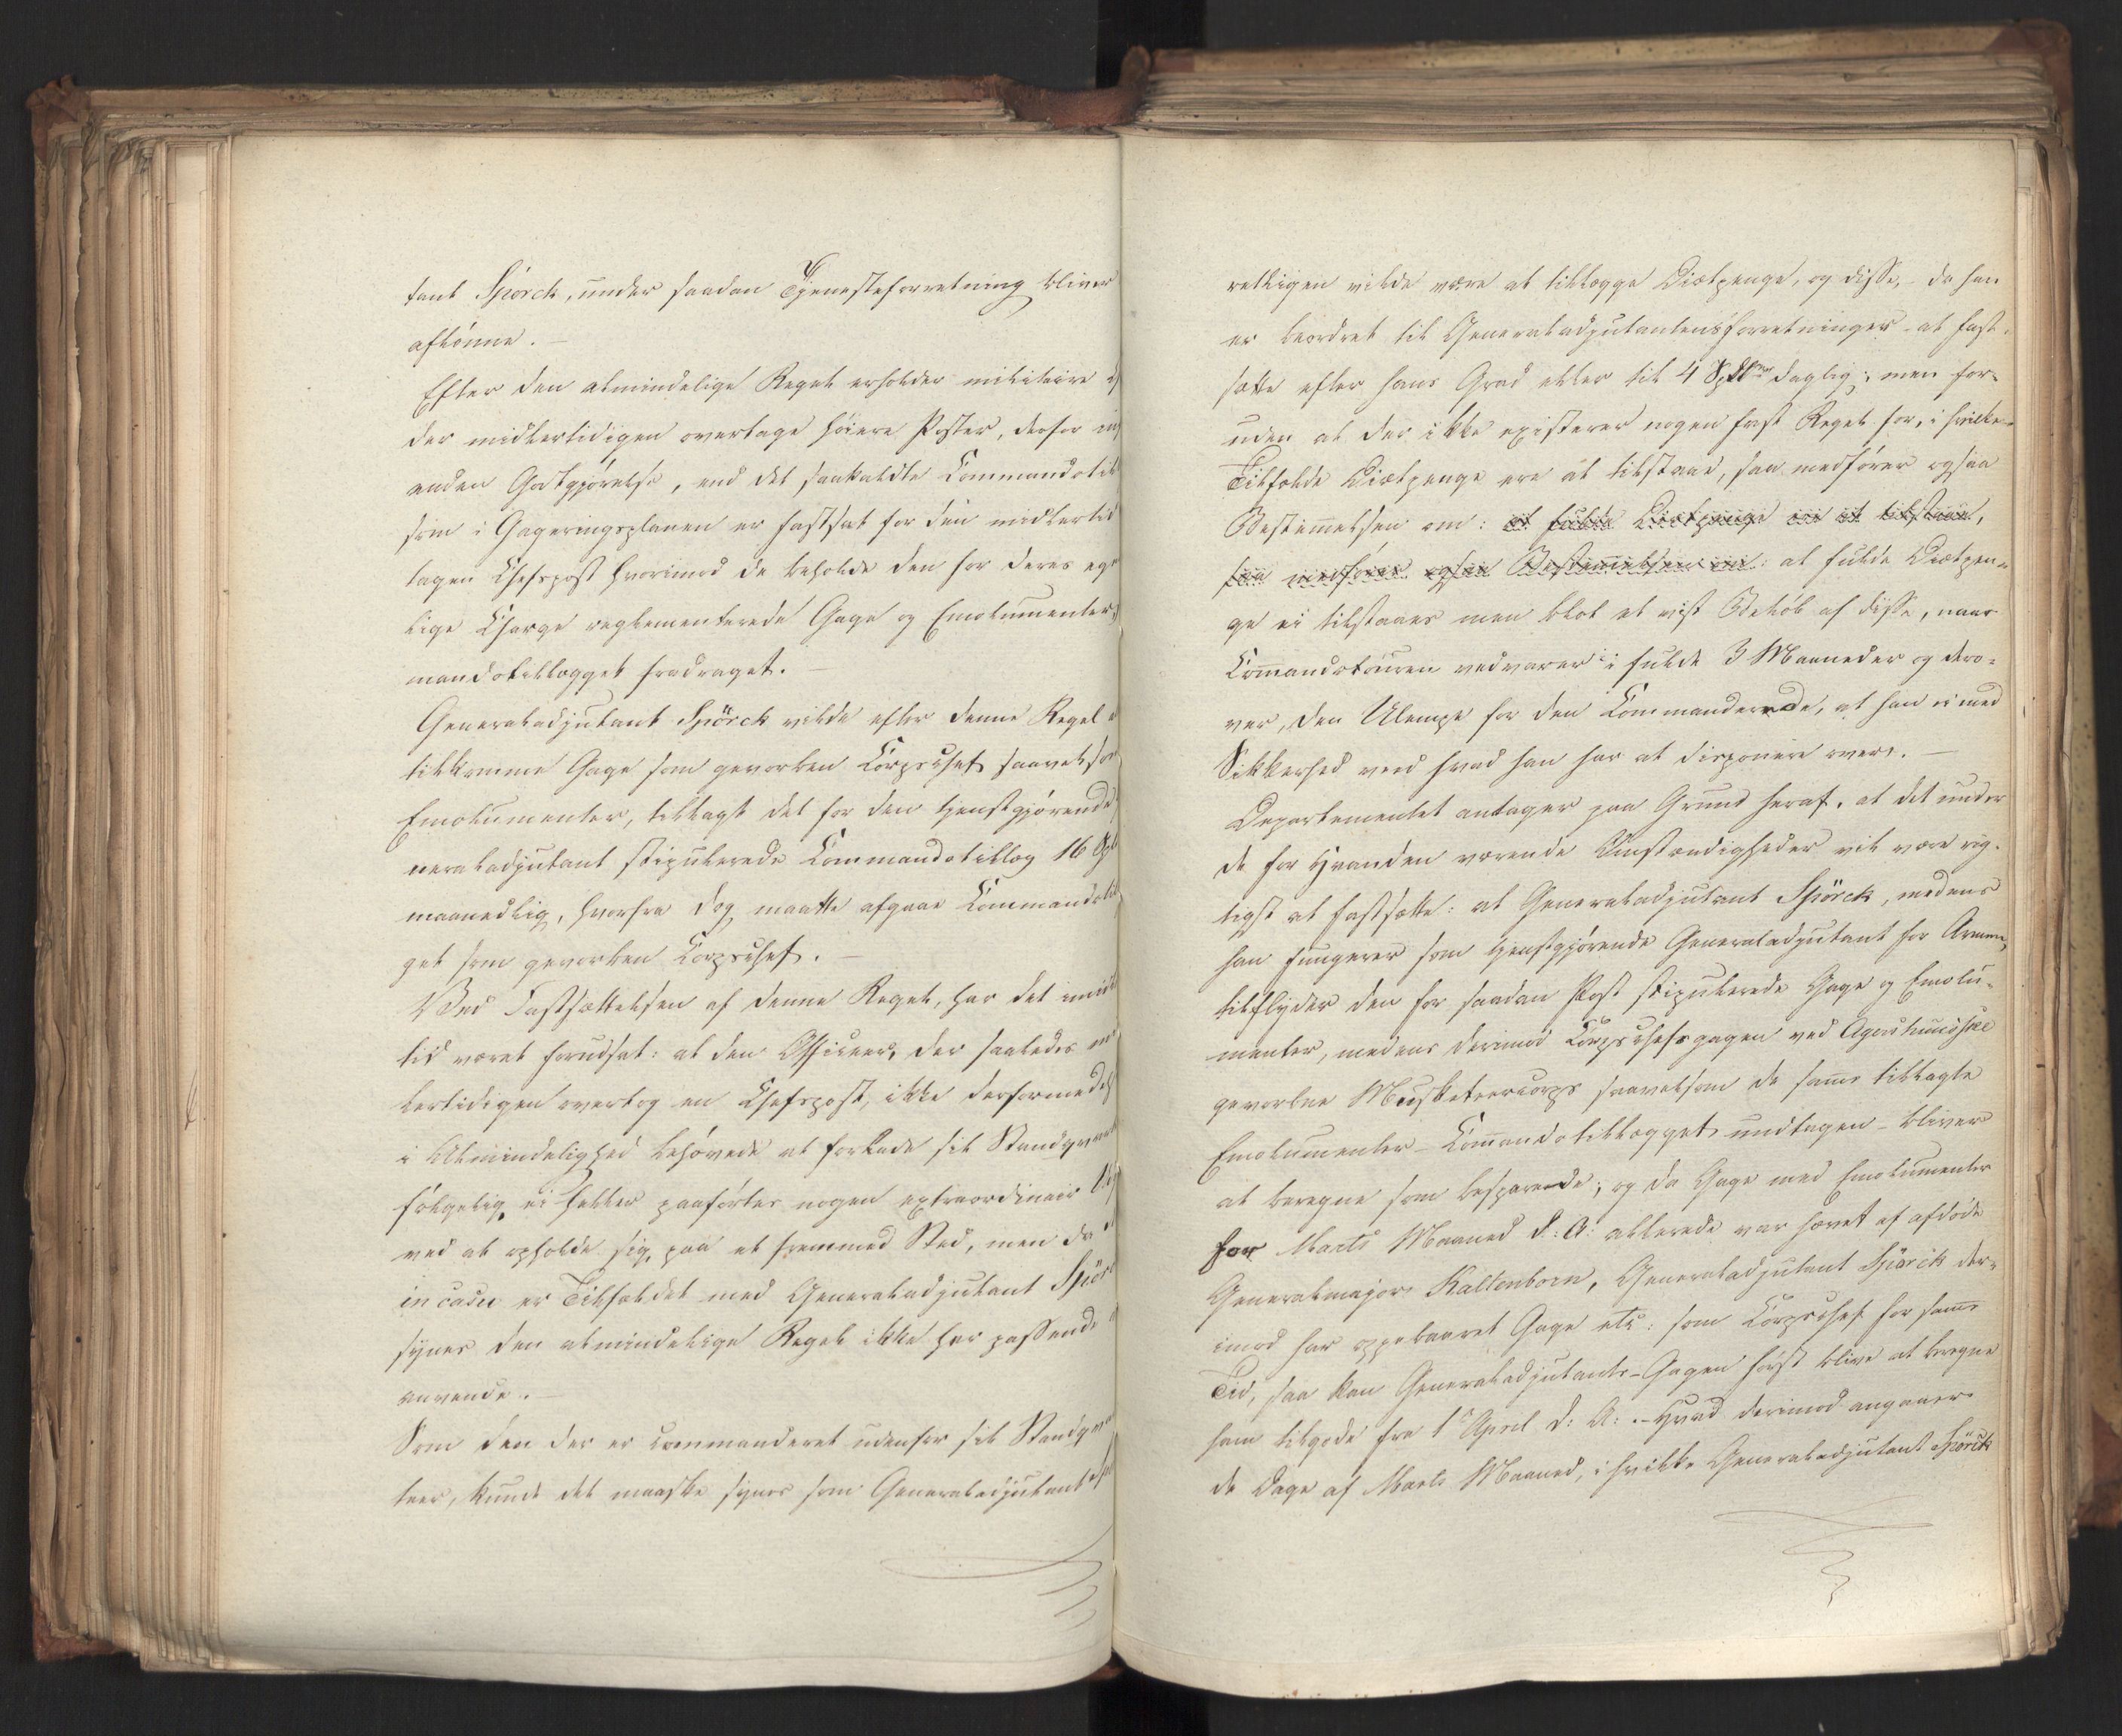 tant Spörck, under saadan Tjenesteforretning bliver
aflönne. —
Efter den almindelige Regel erholder militaire
der midlertidigen overtage höiere Poster, derfor in
anden Godtgjörelse, end det saakaldte Commandotil
som i Gageringsplanen er fastsat for den midlertid
tagen Chefspost hvorimod de beholde den for deres eg
lige Charge reglementerede Gage og Emolumenter,
mandotillægget fradraget. —
Generaladjutant Spörck vilde efter denne Regel
tilkomme Gage som gevorben Corpschef saavelsom
Emolumenter, tillagt det for den tjenstgjörende
neraladjutant stipulerede Commandotillæg 16 Spd
maanedlig, hvorfra dog maatte afgaae Commandotil
get som gevorben Corpschef. —
Ved Fastsættelsen af denne Regel, har det imid
tid været forudsat: at den Officeer, der saaledes mid
lertidigen overtog en Chefspost, ikke derformedelst
i Almindelighed behövede at forlade sit Standqvart
fölgelig ei heller paaförtes nogen extraordinair
ved at opholde sig paa et fremmed Sted, men da
in casu er Tilfældet med Generaladjutant Spörck
synes den almindelige Regel ikke her passende
anvende. —
Som den der er commanderet udenfor sit Standqvar
teer, kunde det maaskee synes som Generaladjutant Sp
retteligen vilde være at tillægge Diætpenge, og disse, – da han
er beordret til Generaladjutantensforretninger – at fast-
sætte efter hans Grad eller til 4 Spdlr daglig; men for-
uden at der ikke existerer nogen fast Regel for, i hvilke
Tilfælde Diætpenge ere at tilstaae, saa medförer ogsaa
Bestemmelsen om: at fulde Diætpenge ei at tilstaae,
saa medförer ogsaa Bestemmelsen om: at fulde Diætpen-
ge ei tilstaaes men blot et vist Belöb af disse, naar
Commandotouren vedvarer i fulde 3 Maaneder og dero-
ver, den Ulempe for den Commanderede, at han ei med
Sikkerhed veed hvad han har at disponere over. —
Departementet antager paa Grund heraf, at det under
de for Haanden værende Omstændigheder vil være rig-
tigst at fastsætte: at Generaladjutant Spörck, medens
han fungerer som tjenstgjörende Generaladjutant for Armeen,
tilflyder den for saadan Post stipulerede Gage og Emolu-
menter, medens derimod Corpschefsgagen ved Agershuusiske
gevorbne Musketeercorps saavelsom de samme tillagte
Emolumenter – Commandotillægget undtagen – bliver
at beregne som besparede; og da Gage med Emolumenter
for Marts Maaned d: A: allerede var hævet af afdöde
Generalmajor Kaltenborn, Generaladjutant Spörck der-
imod har oppebaaret Gage etc: som Corpschef for samme
Tid, saa kan Generaladjutants-Gagen först blive at beregne
ham tilgode fra 1 April d: A: – Hvad derimod angaaer
de Dage af Marts Maaned, i hvilke Generaladjutant Spörck